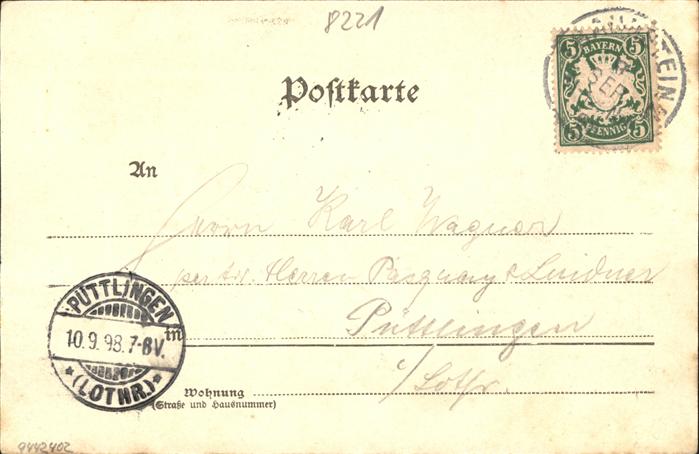 8221
5 BAYERN 5
5 PFENNIG 5
SER
Postkarte
An
Herrn Karl Wagner
per Adr. Herren Pasquay & Lindner
Püttlingen
i/Lothr.
in
PÜTTLINGEN
10.9.98.7-8V.
*(LOTHR.)*
Wohnung
(Straße und Hausnummer)
9442402